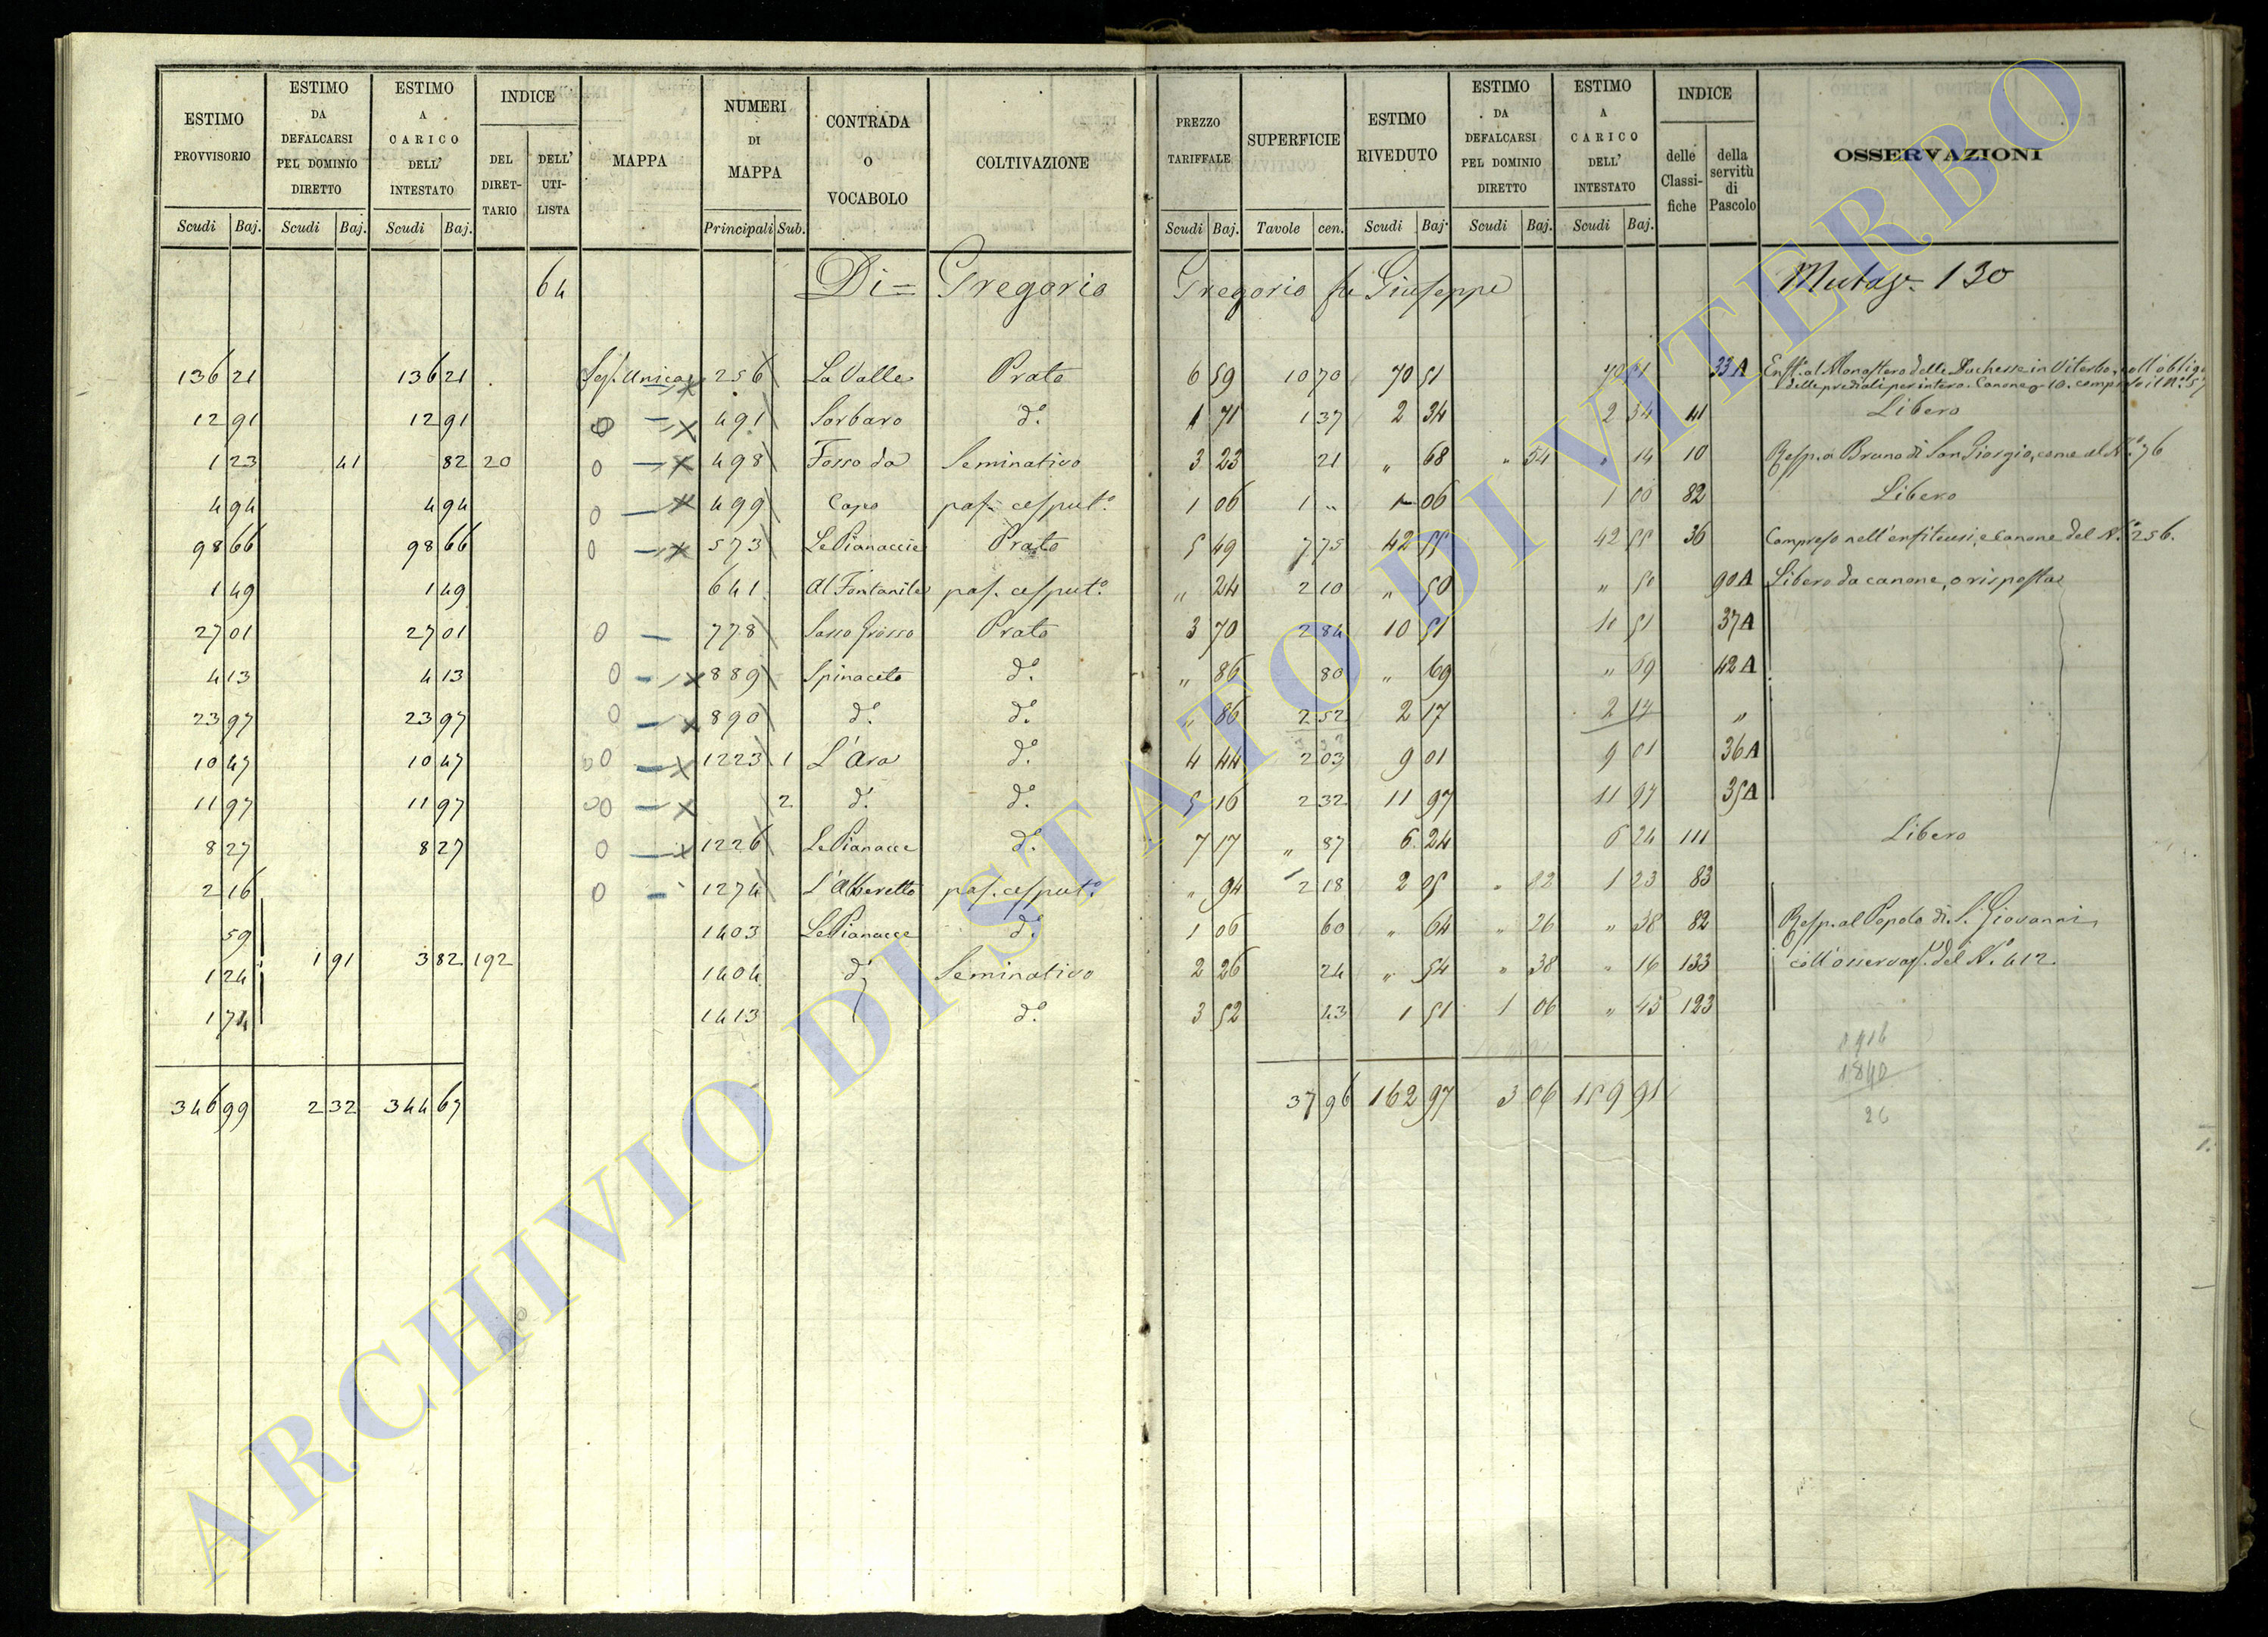 ESTIMO PROVVISORIO | ESTIMO DA DEFALCARSI PEL DOMINIO DIRETTO | ESTIMO A CARICO DELL' INTESTATO | INDICE | MAPPA | NUMERI DI MAPPA | CONTRADA O VOCABOLO | COLTIVAZIONE | PREZZO TARIFFALE | SUPERFICIE | ESTIMO RIVEDUTO | ESTIMO DA DEFALCARSI PEL DOMINIO DIRETTO | ESTIMO A CARICO DELL' INTESTATO | INDICE | OSSERVAZIONI
DEL DIRETTARIO | DELL' UTILISTA | delle Classifiche | della servitù di Pascolo
Scudi | Baj. | Scudi | Baj. | Scudi | Baj. | Principali | Sub. | Scudi | Baj. | Tavole | cen. | Scudi | Baj. | Scudi | Baj. | Scudi | Baj.
64 Di= Gregorio Gregorio fu Giuseppe 130
136 21 136 21 Unica 256 La Valle Prato 6 59 10 70 70 51 70 51 33A Enf. al Monastero delle Duchesse in Viterbo, coll'obligo
delle prediali per intero. Canone
12 91 12 91 491 Sorbaro d.o 1 71 1 37 2 34 2 34 41 Libero
1 23 41 82 20 498 Fosso da Seminativo 3 23 21 „ 68 „ 54 „ 14 10 Resp. a Bruno di San Giorgio, come al N.o 76
4 94 4 94 499 Capo pas. cesput.o 1 06 1 „ 1 06 1 06 82 Libero
98 66 98 66 573 Le Pianaccie Prato 5 49 7 75 42 55 42 55 36 Compreso nell'enfiteusi, e Canone del N.o 256.
1 49 1 49 641 Al Fontanile pas. cesput.o „ 24 2 10 „ 50 „ 50 90A Libero da canone, o risposta
27 01 27 01 778 Sasso Grosso Prato 3 70 2 84 10 51 10 51 37A
4 13 4 13 889 Spinaceto d.o „ 86 80 „ 69 „ 69 42A
23 97 23 97 890 d.o d.o „ 86 2 52 2 17 2 17 „
10 47 10 47 1223 1 L'Ara d.o 4 44 2 03 9 01 9 01 36A
11 97 11 97 2 d.o d.o 5 16 2 32 11 97 11 97 35A
8 27 8 27 1226 Le Pianacce d.o 7 17 „ 87 6 24 6 24 111 Libero
2 16 1274 L'Alberetto pas. cesput.o „ 94 2 18 2 05 „ 82 1 23 83
59 1403 Le Pianacce d.o 1 06 60 „ 64 „ 26 „ 38 82 Resp. al Popolo di S. Giovanni
1 91 3 82 192
1 24 1404 d.o Seminativo 2 26 24 „ 54 „ 38 „ 16 133 coll'osservaz. del N.o 412.
1 74 1413 d.o 3 52 43 1 51 1 06 „ 45 123
346 99 2 32 344 67 37 96 162 97 3 06 159 91
1840
26
ARCHIVIO DI STATO DI VITERBO